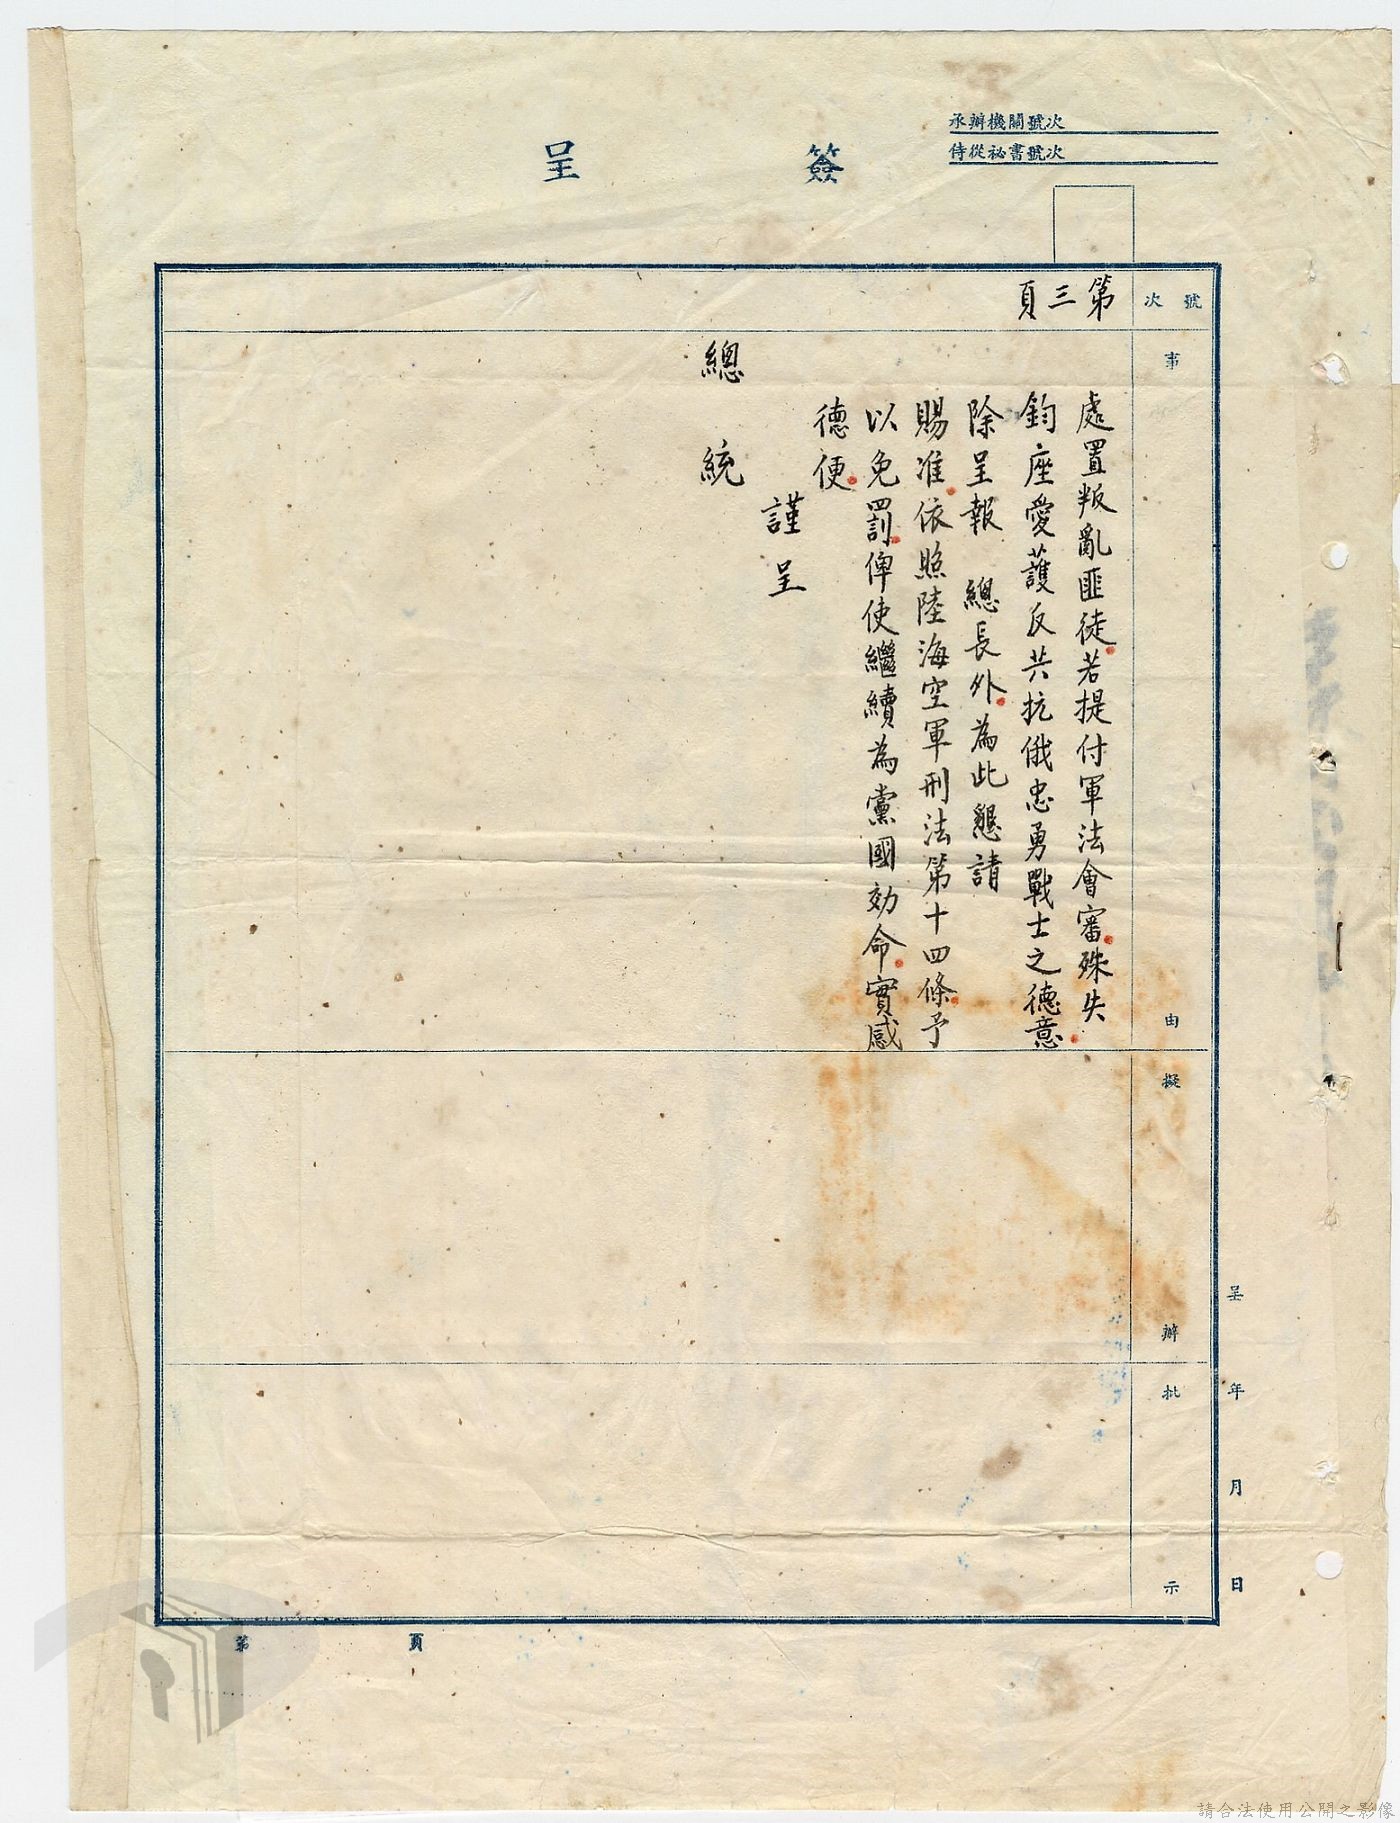 承辦機關號次
侍從祕書號次
簽呈
號次
第三頁
事由
處置叛亂匪徒若提付軍法會審殊失
鈞座愛護反共抗俄忠勇戰士之德意
除呈報 總長外為此懇請
賜准依照陸海空軍刑法第十四條予
以免罰俾使繼續為黨國効命實感
德便
謹呈
總統
擬辦
批示
呈 年 月 日
第 頁
請合法使用公開之影像